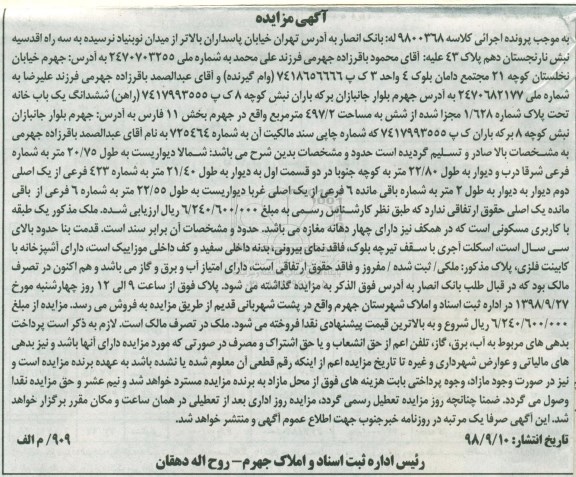 آگهی مزایده
به موجب پرونده اجرائی کلاسه ۹۸۰۰۳۶۸ له: بانک انصار به آدرس تهران خیابان پاسداران بالاتر از میدان نوبنیاد نرسیده به سه راه اقدسیه
نبش نارنجستان دهم پلاک ۴۳ علیه: آقای محمود باقرزاده جهرمی فرزند علی محمد به شماره ملی ۲۴۷۰۷۰۳۲۵۵ به آدرس: جهرم خیابان
نخلستان کوچه ۲۱ مجتمع دامان بلوک ۴ واحد ۳ ک پ ۷۴۱۸۶۵۶۶۶۶ (وام گیرنده) و آقای عبدالصمد باقرزاده جهرمی فرزند علیرضا به
شماره ملی ۲۴۷۰۶۸۲۱۷۷ به آدرس جهرم بلوار جانبازان برکه باران نبش کوچه ۸ ک پ ۷۴۱۷۹۹۳۵۵۵ (راهن) ششدانگ یک باب خانه
تحت پلاک شماره ۱/۶۲۸ مجزا شده از شش به مساحت ۴۹۷/۲ مترمربع واقع در جهرم بخش ۱۱ فارس به آدرس: جهرم بلوار جانبازان
نبش کوچه ۸ برکه باران ک پ ۷۴۱۷۹۹۳۵۵۵ که شماره چاپی سند مالکیت آن به شماره ۷۲۵۴۶۴ به نام آقای عبدالصمد باقرزاده جهرمی
به مشخصات بالا صادر و تسلیم گردیده است حدود و مشخصات بدین شرح می باشد: شمالا دیواریست به طول ۲۰/۷۵ متر به شماره
فرعی شرقا درب و دیوار به طول ۲۲/۸۰ متر به کوچه جنوبا در دو قسمت اول به دیوار به طول ۲۱/۴۰ متر به شماره ۴۲۳ فرعی از یک اصلی
دوم دیوار به دیوار به طول ۲ متر به شماره باقی مانده ۶ فرعی از یک اصلی غربا دیواریست به طول ۲۲/۵۵ متر به شماره ۶ فرعی از باقی
مانده یک اصلی حقوق ارتفاقی ندارد که طبق نظر کارشناس رسمی به مبلغ ۶/۲۴۰/۶۰۰/۰۰۰ ریال ارزیابی شده. ملک مذکور یک طبقه
با کاربری مسکونی است که در همکف نیز دارای چهار دهانه مغازه می باشد. حدود و مشخصات آن برابر سند است. قدمت بنا حدود بالای
سی سال است، اسکلت آجری با سقف تیرچه بلوک، فاقد نمای بیرونی، بدنه داخلی سفید و کف داخلی موزاییک است، دارای آشپزخانه با
کابینت فلزی، پلاک مذکور: ملکی / ثبت شده / مفروز و فاقد حقوق ارتفاقی است، دارای امتیاز آب و برق و گاز می باشد و هم اکنون در تصرف
مالک بود که در قبال طلب بانک انصار به آدرس فوق الذکر به مزایده گذاشته می شود. پلاک فوق از ساعت ۹ الی ۱۲ روز چهارشنبه مورخ
۱۳۹۸/۹/۲۷ در اداره ثبت اسناد و املاک شهرستان جهرم واقع در پشت شهربانی قدیم از طریق مزایده به فروش می رسد. مزایده از مبلغ
۶/۲۴۰/۶۰۰/۰۰۰ ریال شروع و به بالاترین قیمت پیشنهادی نقدا فروخته می شود. ملک در تصرف مالک است. لازم به ذکر است پرداخت
بدهی های مربوط به آب، برق، گاز، تلفن اعم از حق انشعاب و یا حق اشتراک و مصرف در صورتی که مورد مزایده دارای آنها باشد و نیز بدهی
های مالیاتی و عوارض شهرداری و غیره تا تاریخ مزایده اعم از اینکه رقم قطعی آن معلوم شده یا نشده باشد به عهده برنده مزایده است و
نیز در صورت وجود مازاد، وجوه پرداختی بابت هزینه های فوق از محل مازاد به برنده مزایده مسترد خواهد شد و نیم عشر و حق مزایده نقدا
وصول می گردد. ضمنا چنانچه روز مزایده تعطیل رسمی گردد، مزایده روز اداری بعد از تعطیلی در همان ساعت و مکان مقرر برگزار خواهد
شد. این آگهی صرفا یک مرتبه در روزنامه خبرجنوب جهت اطلاع عموم آگهی و منتشر خواهد شد.
تاریخ انتشار: ۹۸/۹/۱۰ ۹۰۹/ م الف
رئیس اداره ثبت اسناد و املاک جهرم – روح اله دهقان